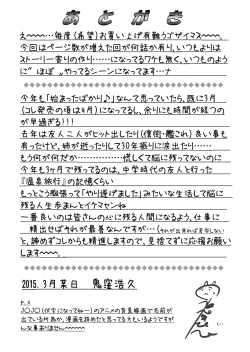 あとがき
え~~~…毎度(希望)お買い上げ有難うザイマス~~~。
今回はページ数が増えた回が何話か有り、いつもよりは
ストーリー寄りの作り……になってるワケも無く、いつものよう
に〝ほぼ〟ヤってるシーンになってます…ナ
今年も「始まったばかり♪」なんて思っていたら、既に3月
(コレ発売の頃は4月)になってるし、余りにも時間が経つの
が早過ぎる!!!
去年は友人二人がヒット出したり(僕街・艦これ)良い事も
有ったけど、姉が逝ったりして30年振りに涙出たり……
もう何が何だか……………慌しくて脳に残ってないのに
今年も3ヶ月で残ってるのは、中学時代の友人と行った
『温泉旅行』の記憶くらい
もっともこう脳裏って「やり遂げました」みたいな生活して脳に
残る人生歩まんとイケマセンね
一番良いのは皆さんの心に残る人間になるよう、仕事に
精出せばそれが最善なんですが…(それが出来れば苦労しない)
と、諦めずコレからも精進しますので、見捨てずに応援お願い
します~~~~。
2015. 3月某日 鬼窪浩久
P.S
JOJO(伏字になってねー)のアニメの背景線画で名前が
出ている所為か、漫画を諦めたと思ってる人もいるようですが
んな事ありません~~~~~